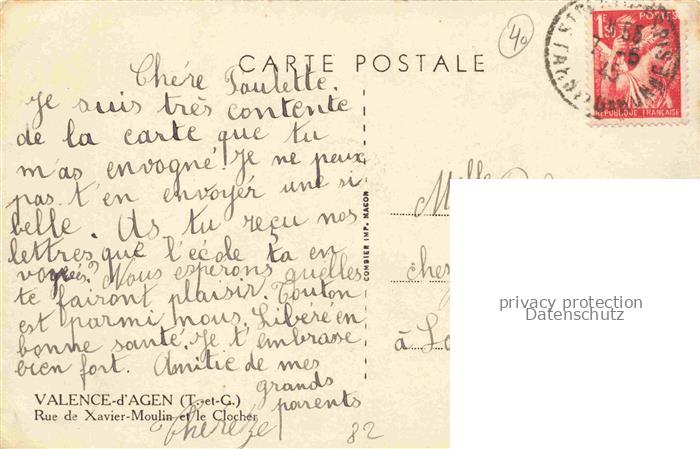 40
POSTES
1F50
REPUBLIQUE FRANÇAISE
CARTE POSTALE
Chére Paulette.
Je suis très contente
de la carte que tu
m'as envogné! Je ne peux
pas t'en envoyér une si
belle. As tu reçu nos
lettres que l'école ta en
voyées? Nous espérons quélles
te fairont plaisir. Touton
est parmi nous. Libéré en
bonne santé. Je t'embrase
bien fort. Amitie de mes
grands
parents
Théréze
VALENCE-d'AGEN (T.-et-G.)
Rue de Xavier-Moulin et le Clocher
82
COMBIER IMP. MACON
Mlle
chez
à
privacy protection
Datenschutz